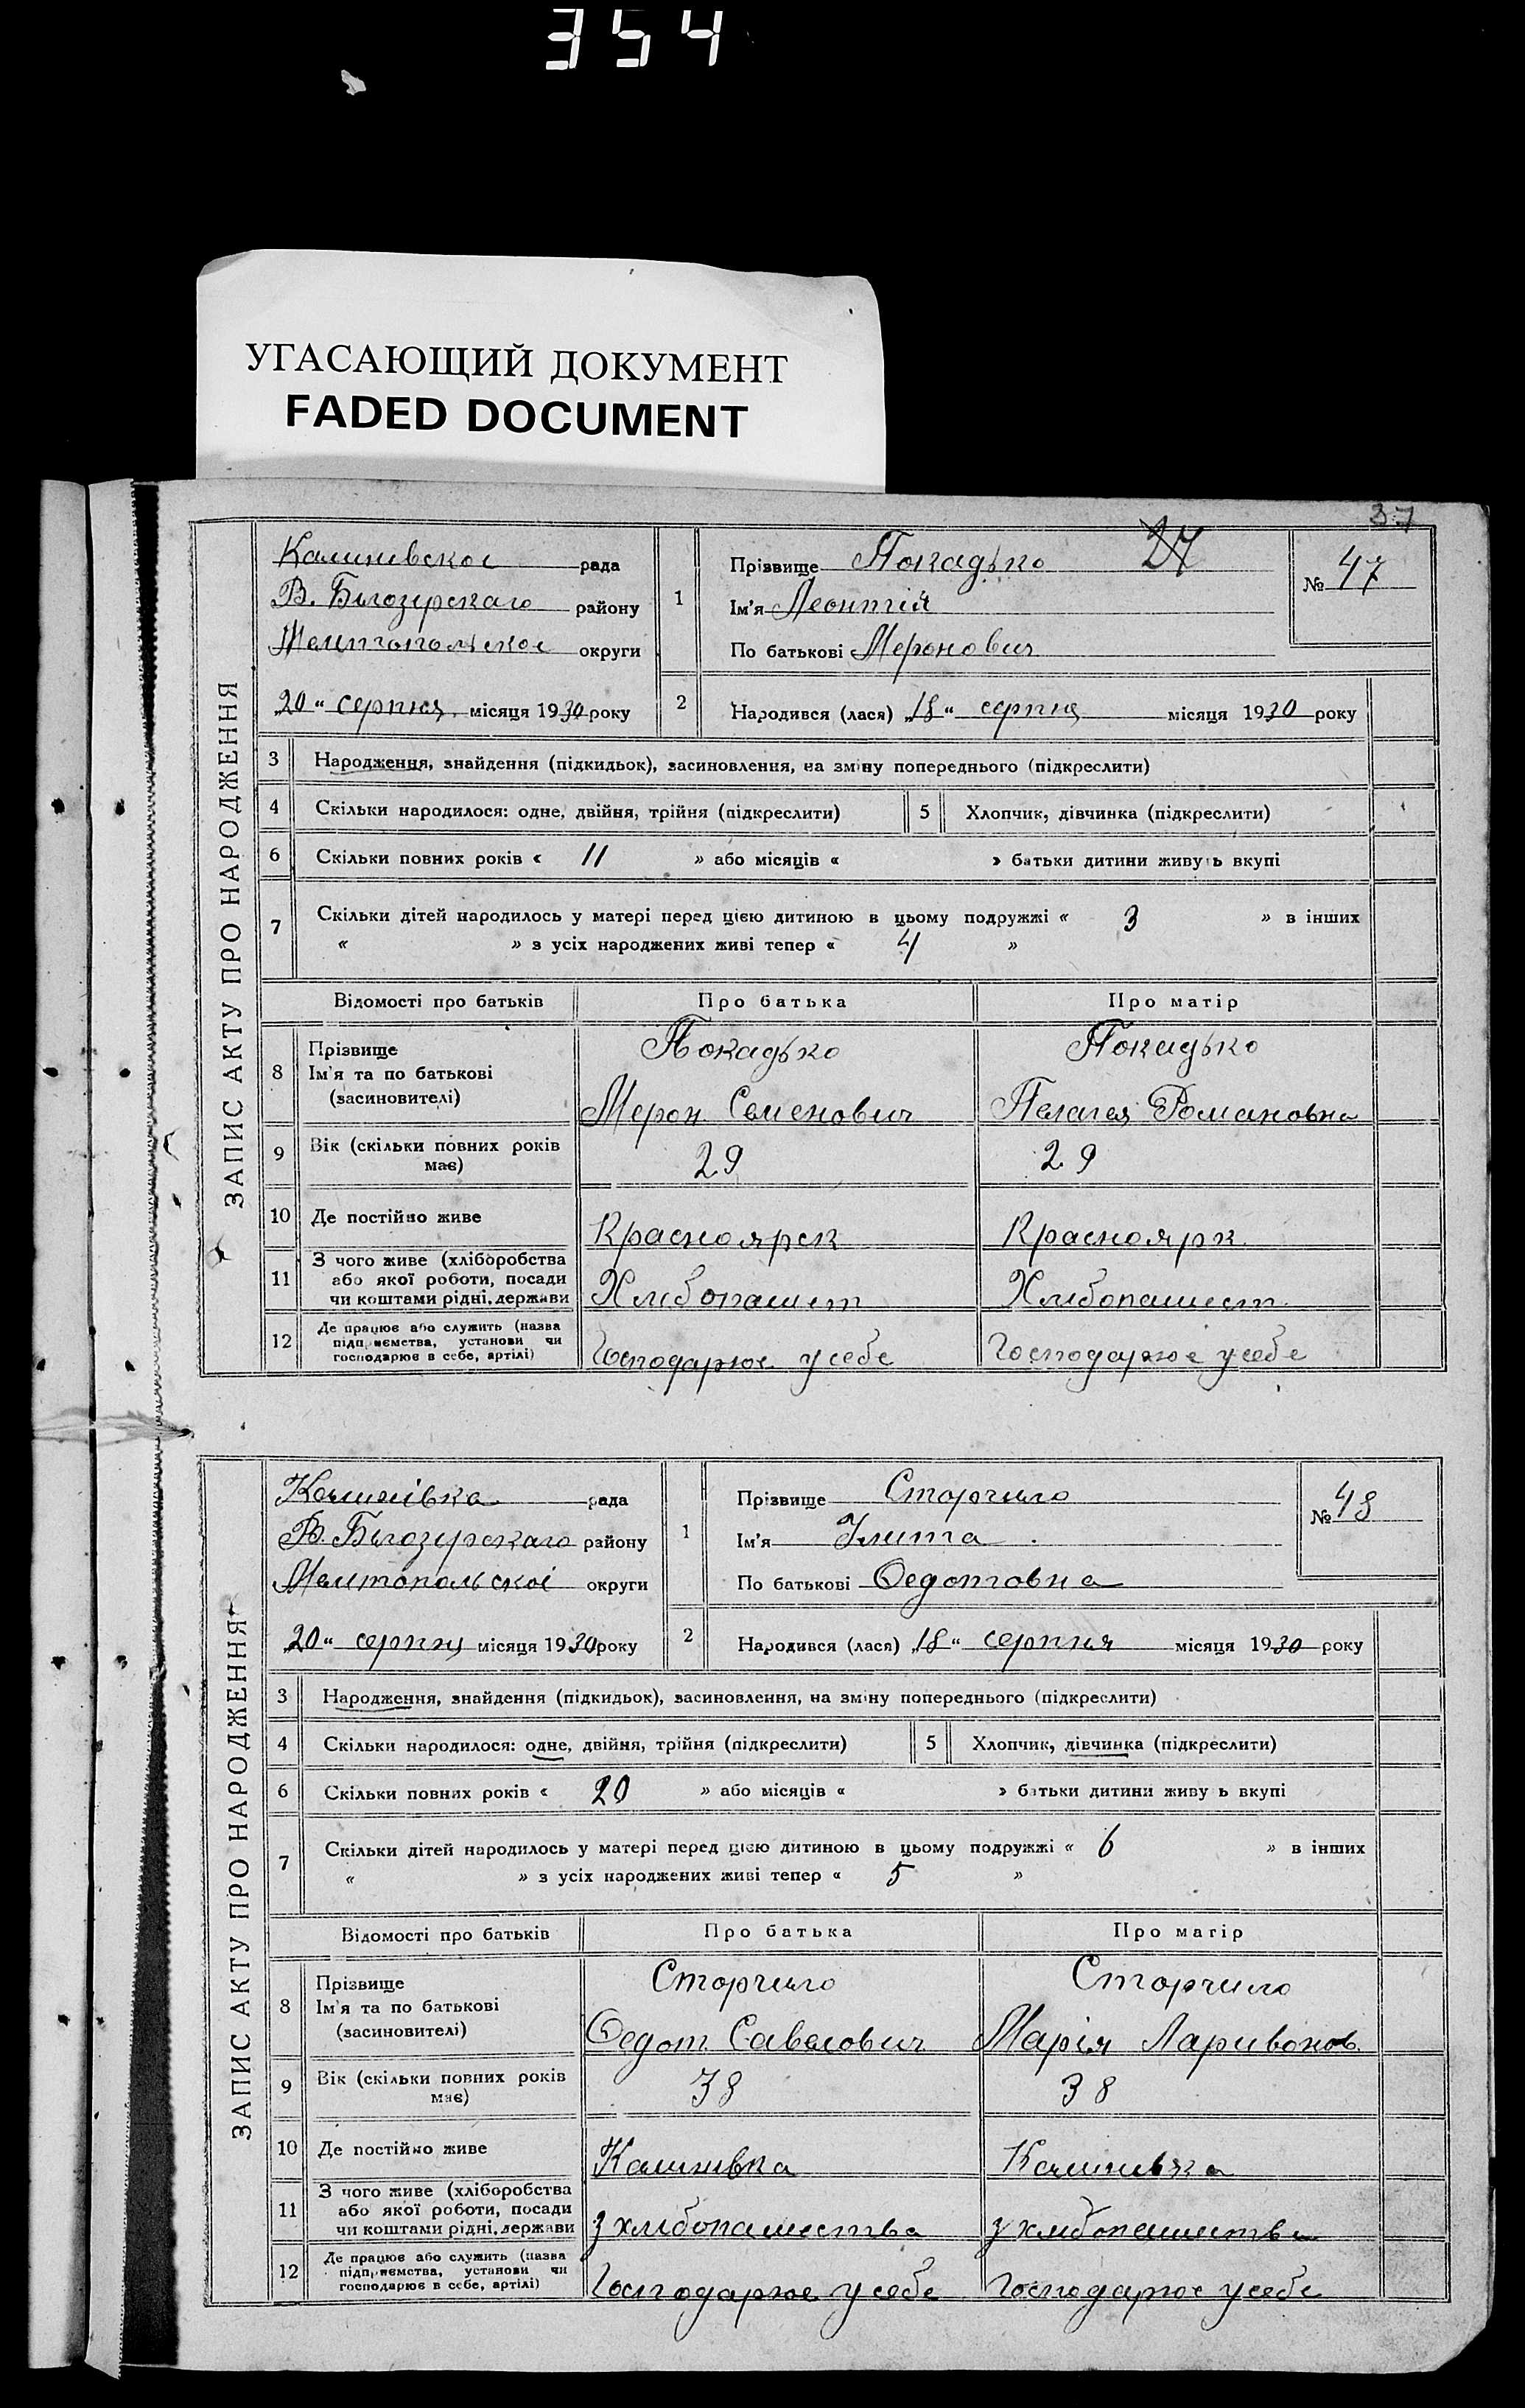 354
УГАСАЮЩИЙ ДОКУМЕНТ
FADED DOCUMENT
37
ЗАПИС АКТУ ПРО НАРОДЖЕННЯ
рада
В. Білозерскаго району
округи
„20“ серпня місяця 1930 року
1
Прізвище Покадько 27
Ім'я Леонтій
По батькові Меронович
№ 47
2
Народився (лася) „18“ серпня місяця 1930 року
3 Народження, знайдення (підкидьок), засиновлення, на зміну попереднього (підкреслити)
4 Скільки народилося: одне, двійня, трійня (підкреслити) 5 Хлопчик, дівчинка (підкреслити)
6 Скільки повних років « 11 » або місяців « » батьки дитини живуть вкупі
7 Скільки дітей народилось у матері перед цією дитиною в цьому подружжі « 3 » в інших
« » з усіх народжених живі тепер « 4 »
Відомості про батьків Про батька Про матір
8 Прізвище Покадько Покадько
Ім'я та по батькові
(засиновителі) Мерон Семенович Пелагея Романовна
9 Вік (скільки повних років
має) 29 29
10 Де постійно живе Красноярск Красноярк
11 З чого живе (хліборобства
або якої роботи, посади
чи коштами рідні, держави Хлібопашет Хлібопашест
12 Де працює або служить (назва
підприємства, установи чи
господарює в себе, артілі) Господарює у себе Господарює у себе
ЗАПИС АКТУ ПРО НАРОДЖЕННЯ
Калинівка рада
В. Білозерскаго району
Мелитопольскоі округи
„20“ серпня місяця 1930 року
1
Прізвище Сторчило
Ім'я
По батькові Федотовна
№ 48
2
Народився (лася) „18“ серпня місяця 1930 року
3 Народження, знайдення (підкидьок), засиновлення, на зміну попереднього (підкреслити)
4 Скільки народилося: одне, двійня, трійня (підкреслити) 5 Хлопчик, дівчинка (підкреслити)
6 Скільки повних років « 20 » або місяців « » батьки дитини живу ь вкупі
7 Скільки дітей народилось у матері перед цією дитиною в цьому подружжі « 6 » в інших
« » з усіх народжених живі тепер « 5 »
Відомості про батьків Про батька Про матір
8 Прізвище Сторчило Сторчило
Ім'я та по батькові
(засиновителі) Федот Савелович Марія Ларивонов
9 Вік (скільки повних років
має) 38 38
10 Де постійно живе Калинивка Калинивка
11 З чого живе (хліборобства
або якої роботи, посади
чи коштами рідні, держави з хлібопашества з хлібопашества
12 Де працює або служить (назва
підприємства, установи чи
господарює в себе, артілі) Господарює у себе Господарює у себе